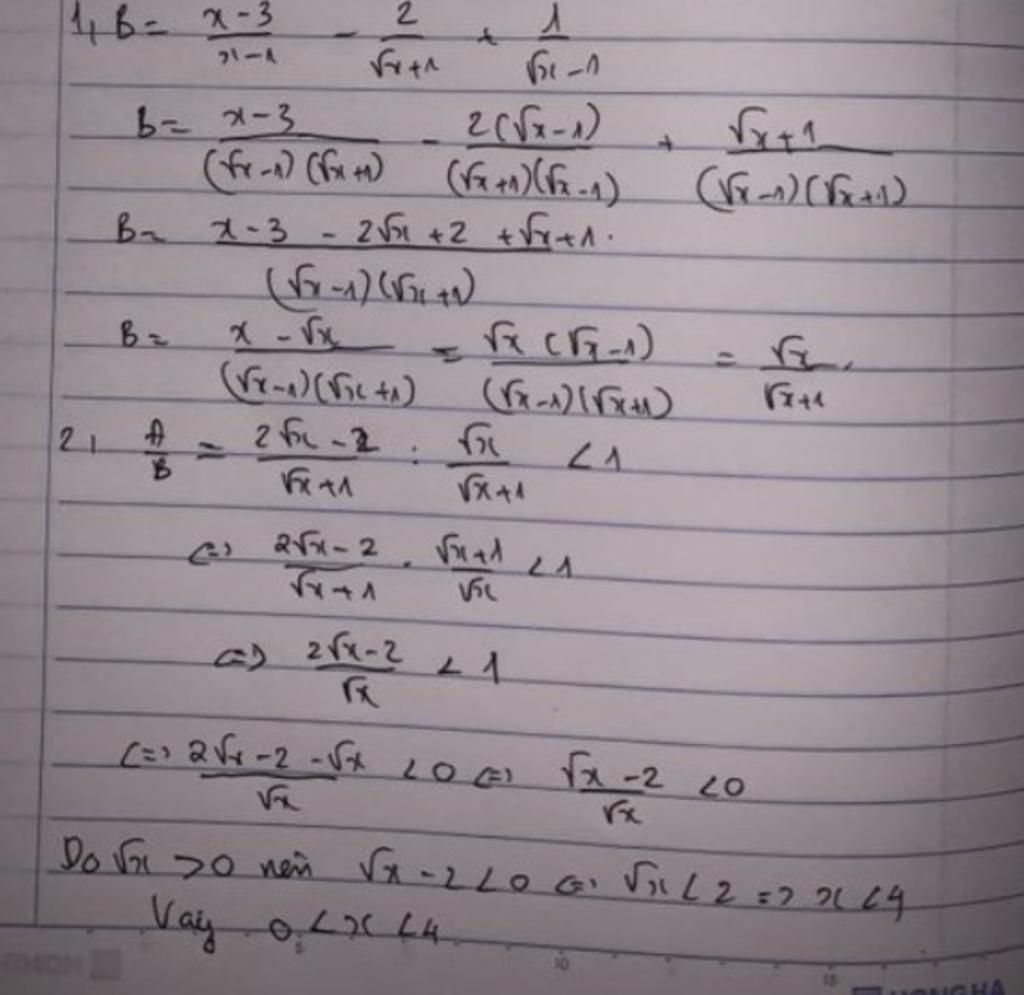 1, B = (x-3)/(x-1) - 2/(√x+1) + 1/(√x-1)
B = (x-3)/((√x-1)(√x+1)) - 2(√x-1)/((√x+1)(√x-1)) + (√x+1)/((√x-1)(√x+1))
B = (x-3 - 2√x +2 +√x+1)/((√x-1)(√x+1)).
B = (x-√x)/((√x-1)(√x+1)) = √x(√x-1)/((√x-1)(√x+1)) = √x/(√x+1).
2, A/B = (2√x-2)/(√x+1) : √x/(√x+1) < 1
<=> (2√x-2)/(√x+1) . (√x+1)/√x < 1
<=> (2√x-2)/√x < 1
<=> (2√x-2-√x)/√x < 0 <=> (√x-2)/√x < 0
Do √x > 0 nên √x-2<0 <=> √x<2 => x<4
Vậy 0<x<4
5 10 15
HONGHA